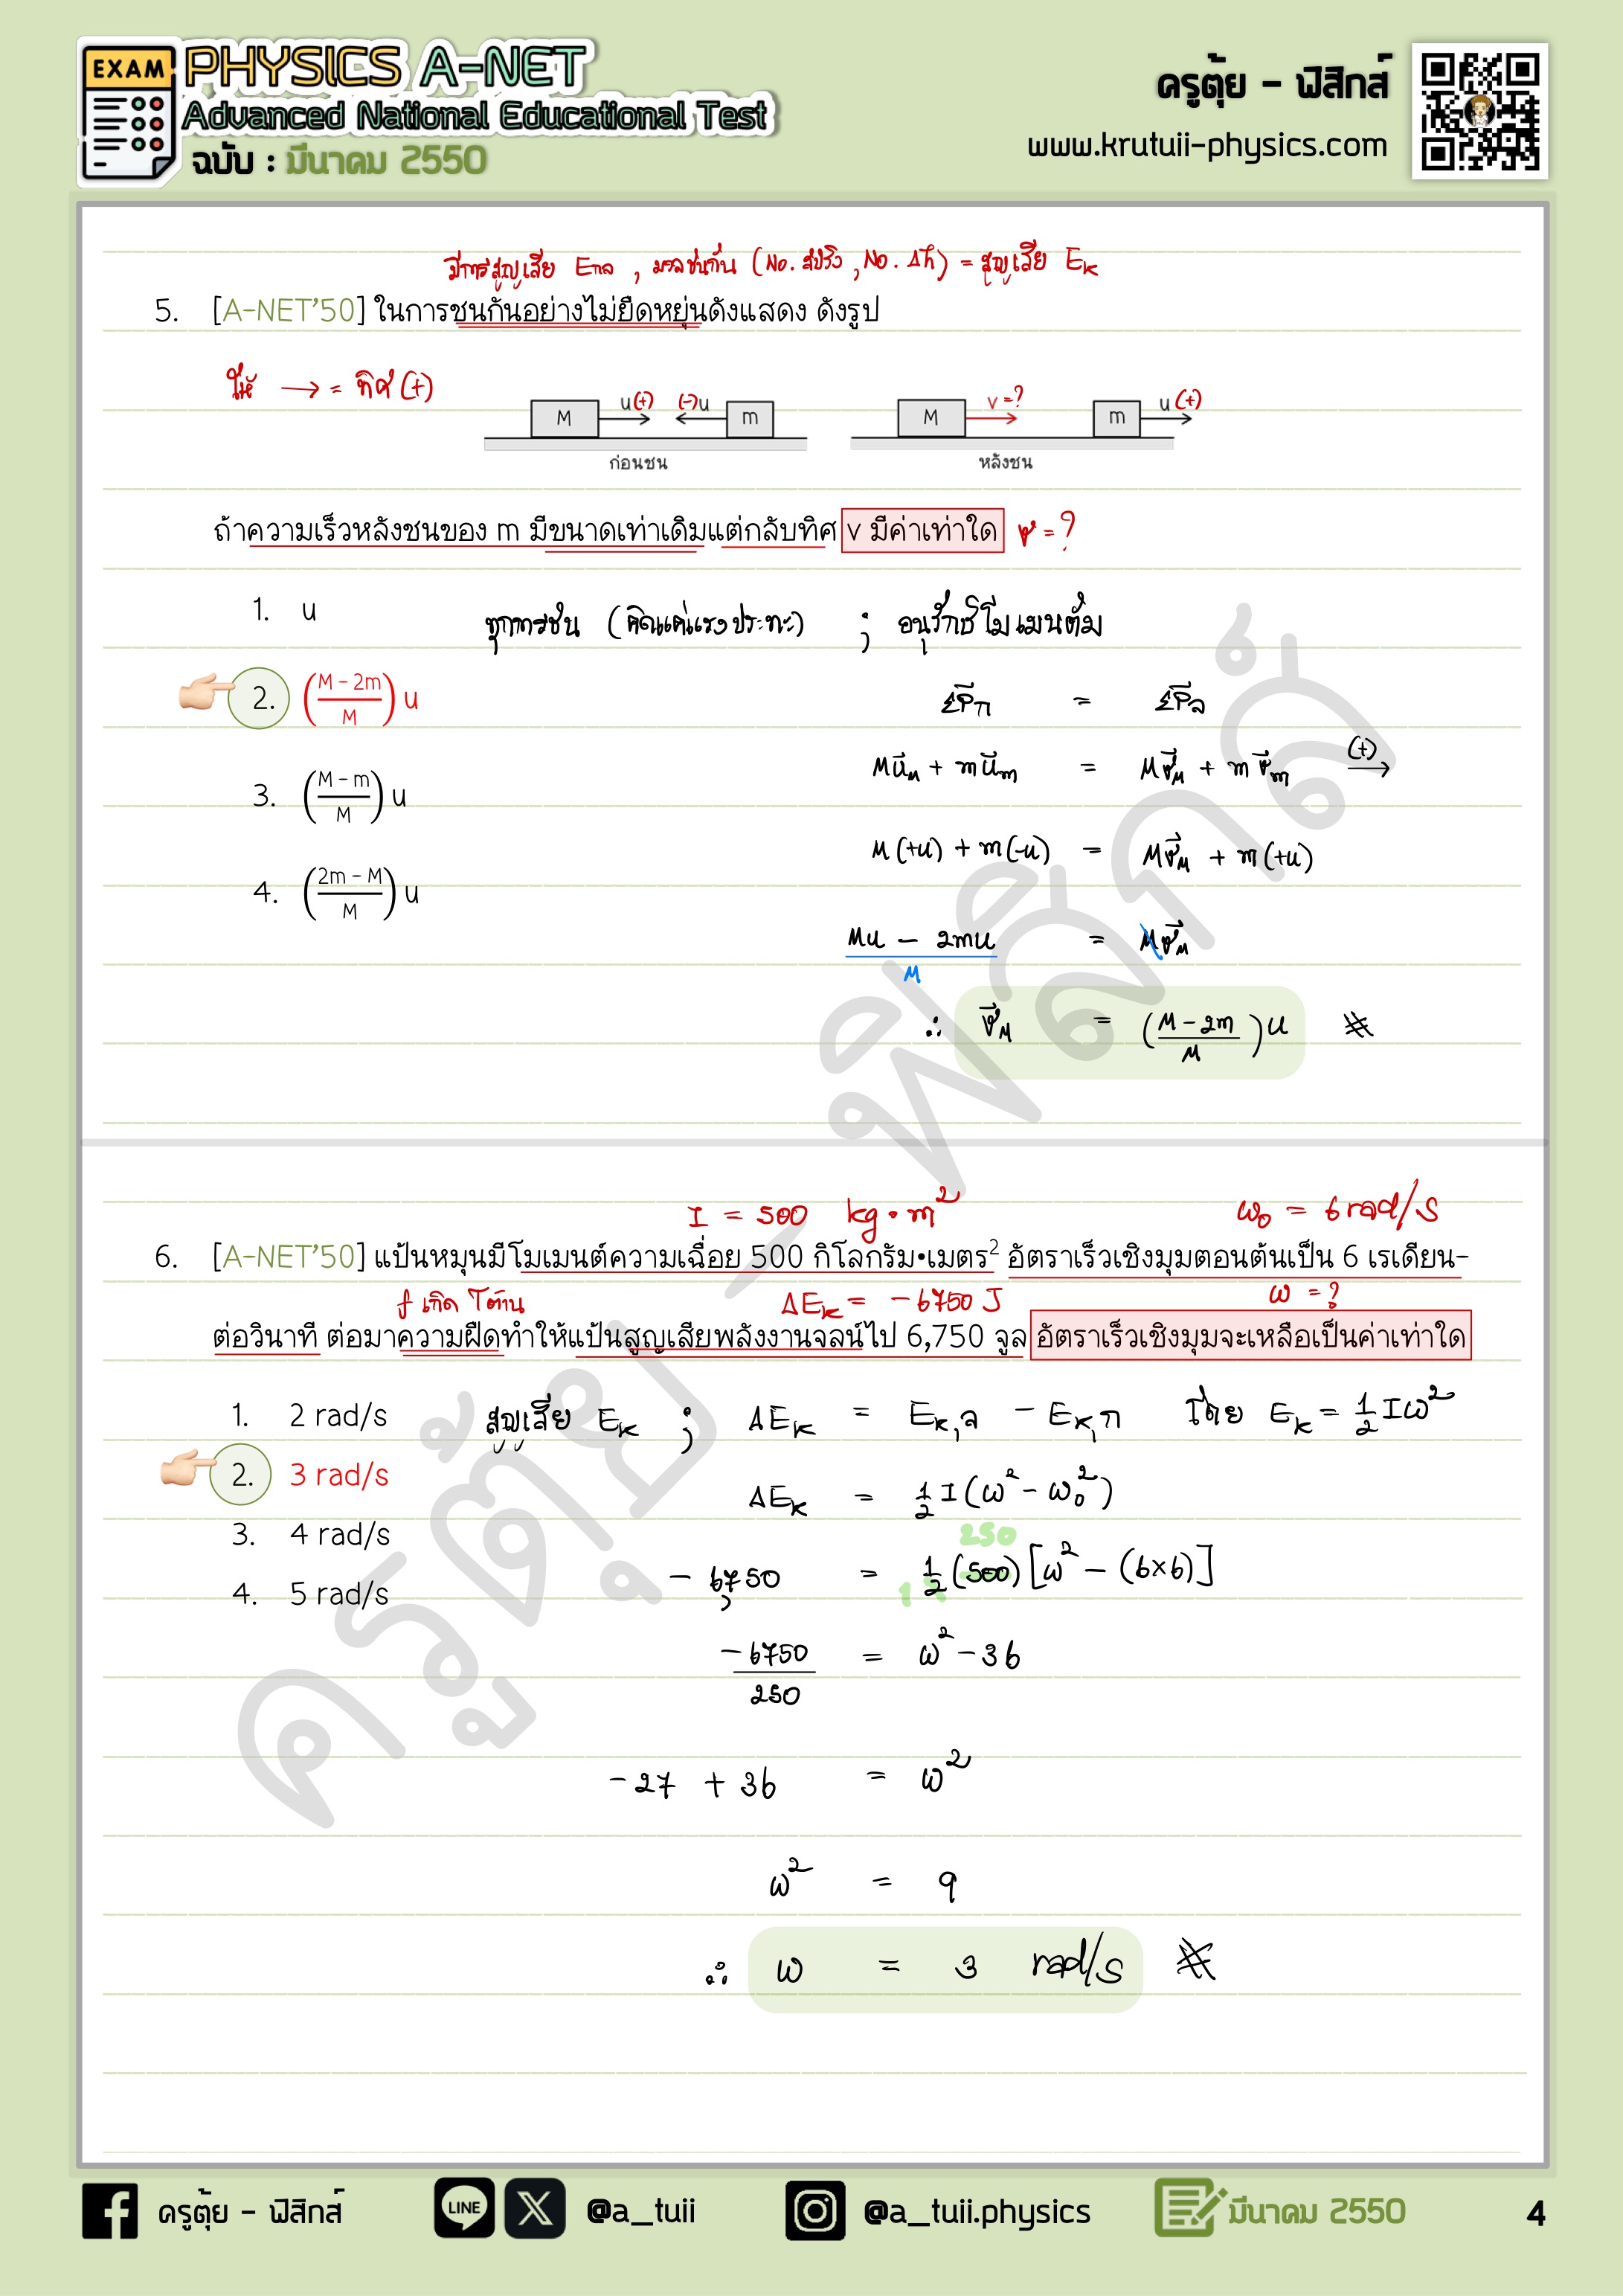 EXAM
PHYSICS A-NET
Advanced National Educational Test
ฉบับ : มีนาคม 2550
ครูตุ้ย - ฟิสิกส์
www.krutuii-physics.com
มีการสูญเสีย Eกล , มวลชนกัน (No. สปริง , No. Δh) = สูญเสีย Ek
5. [A-NET'50] ในการชนกันอย่างไม่ยืดหยุ่นดังแสดง ดังรูป
ให้ → = ทิศ (+)
M u (+) (-) u m
ก่อนชน
M v = ? m u (+)
หลังชน
ถ้าความเร็วหลังชนของ m มีขนาดเท่าเดิมแต่กลับทิศ v มีค่าเท่าใด v = ?
1. u
ทุกการชน (คิดแค่แรงปะทะ) ; อนุรักษ์โมเมนตัม
2. ((M - 2m)/M) u
ΣP̄ก = ΣP̄ล
MūM + mūm = Mv̄M + mv̄m (+) →
3. ((M - m)/M) u
M(+u) + m(-u) = Mv̄M + m(+u)
4. ((2m - M)/M) u
(Mu - 2mu)/M = Mv̄M
∴ v̄M = ((M - 2m)/M) u #
I = 500 kg·m² ω₀ = 6 rad/s
6. [A-NET'50] แป้นหมุนมีโมเมนต์ความเฉื่อย 500 กิโลกรัม•เมตร² อัตราเร็วเชิงมุมตอนต้นเป็น 6 เรเดียน-
f เกิด τต้าน ΔEk = -6750 J ω = ?
ต่อวินาที ต่อมาความฝืดทำให้แป้นสูญเสียพลังงานจลน์ไป 6,750 จูล อัตราเร็วเชิงมุมจะเหลือเป็นค่าเท่าใด
1. 2 rad/s
สูญเสีย Ek ; ΔEk = Ek,ล - Ek,ก โดย Ek = ½Iω²
2. 3 rad/s
ΔEk = ½ I (ω² - ω₀²)
3. 4 rad/s
250
-6,750 = ½ (500) [ω² - (6×6)]
1
4. 5 rad/s
-6750/250 = ω² - 36
-27 + 36 = ω²
ω² = 9
∴ ω = 3 rad/s #
ครูตุ้ย - ฟิสิกส์
ครูตุ้ย - ฟิสิกส์
LINE
X
@a_tuii
@a_tuii.physics
มีนาคม 2550
4